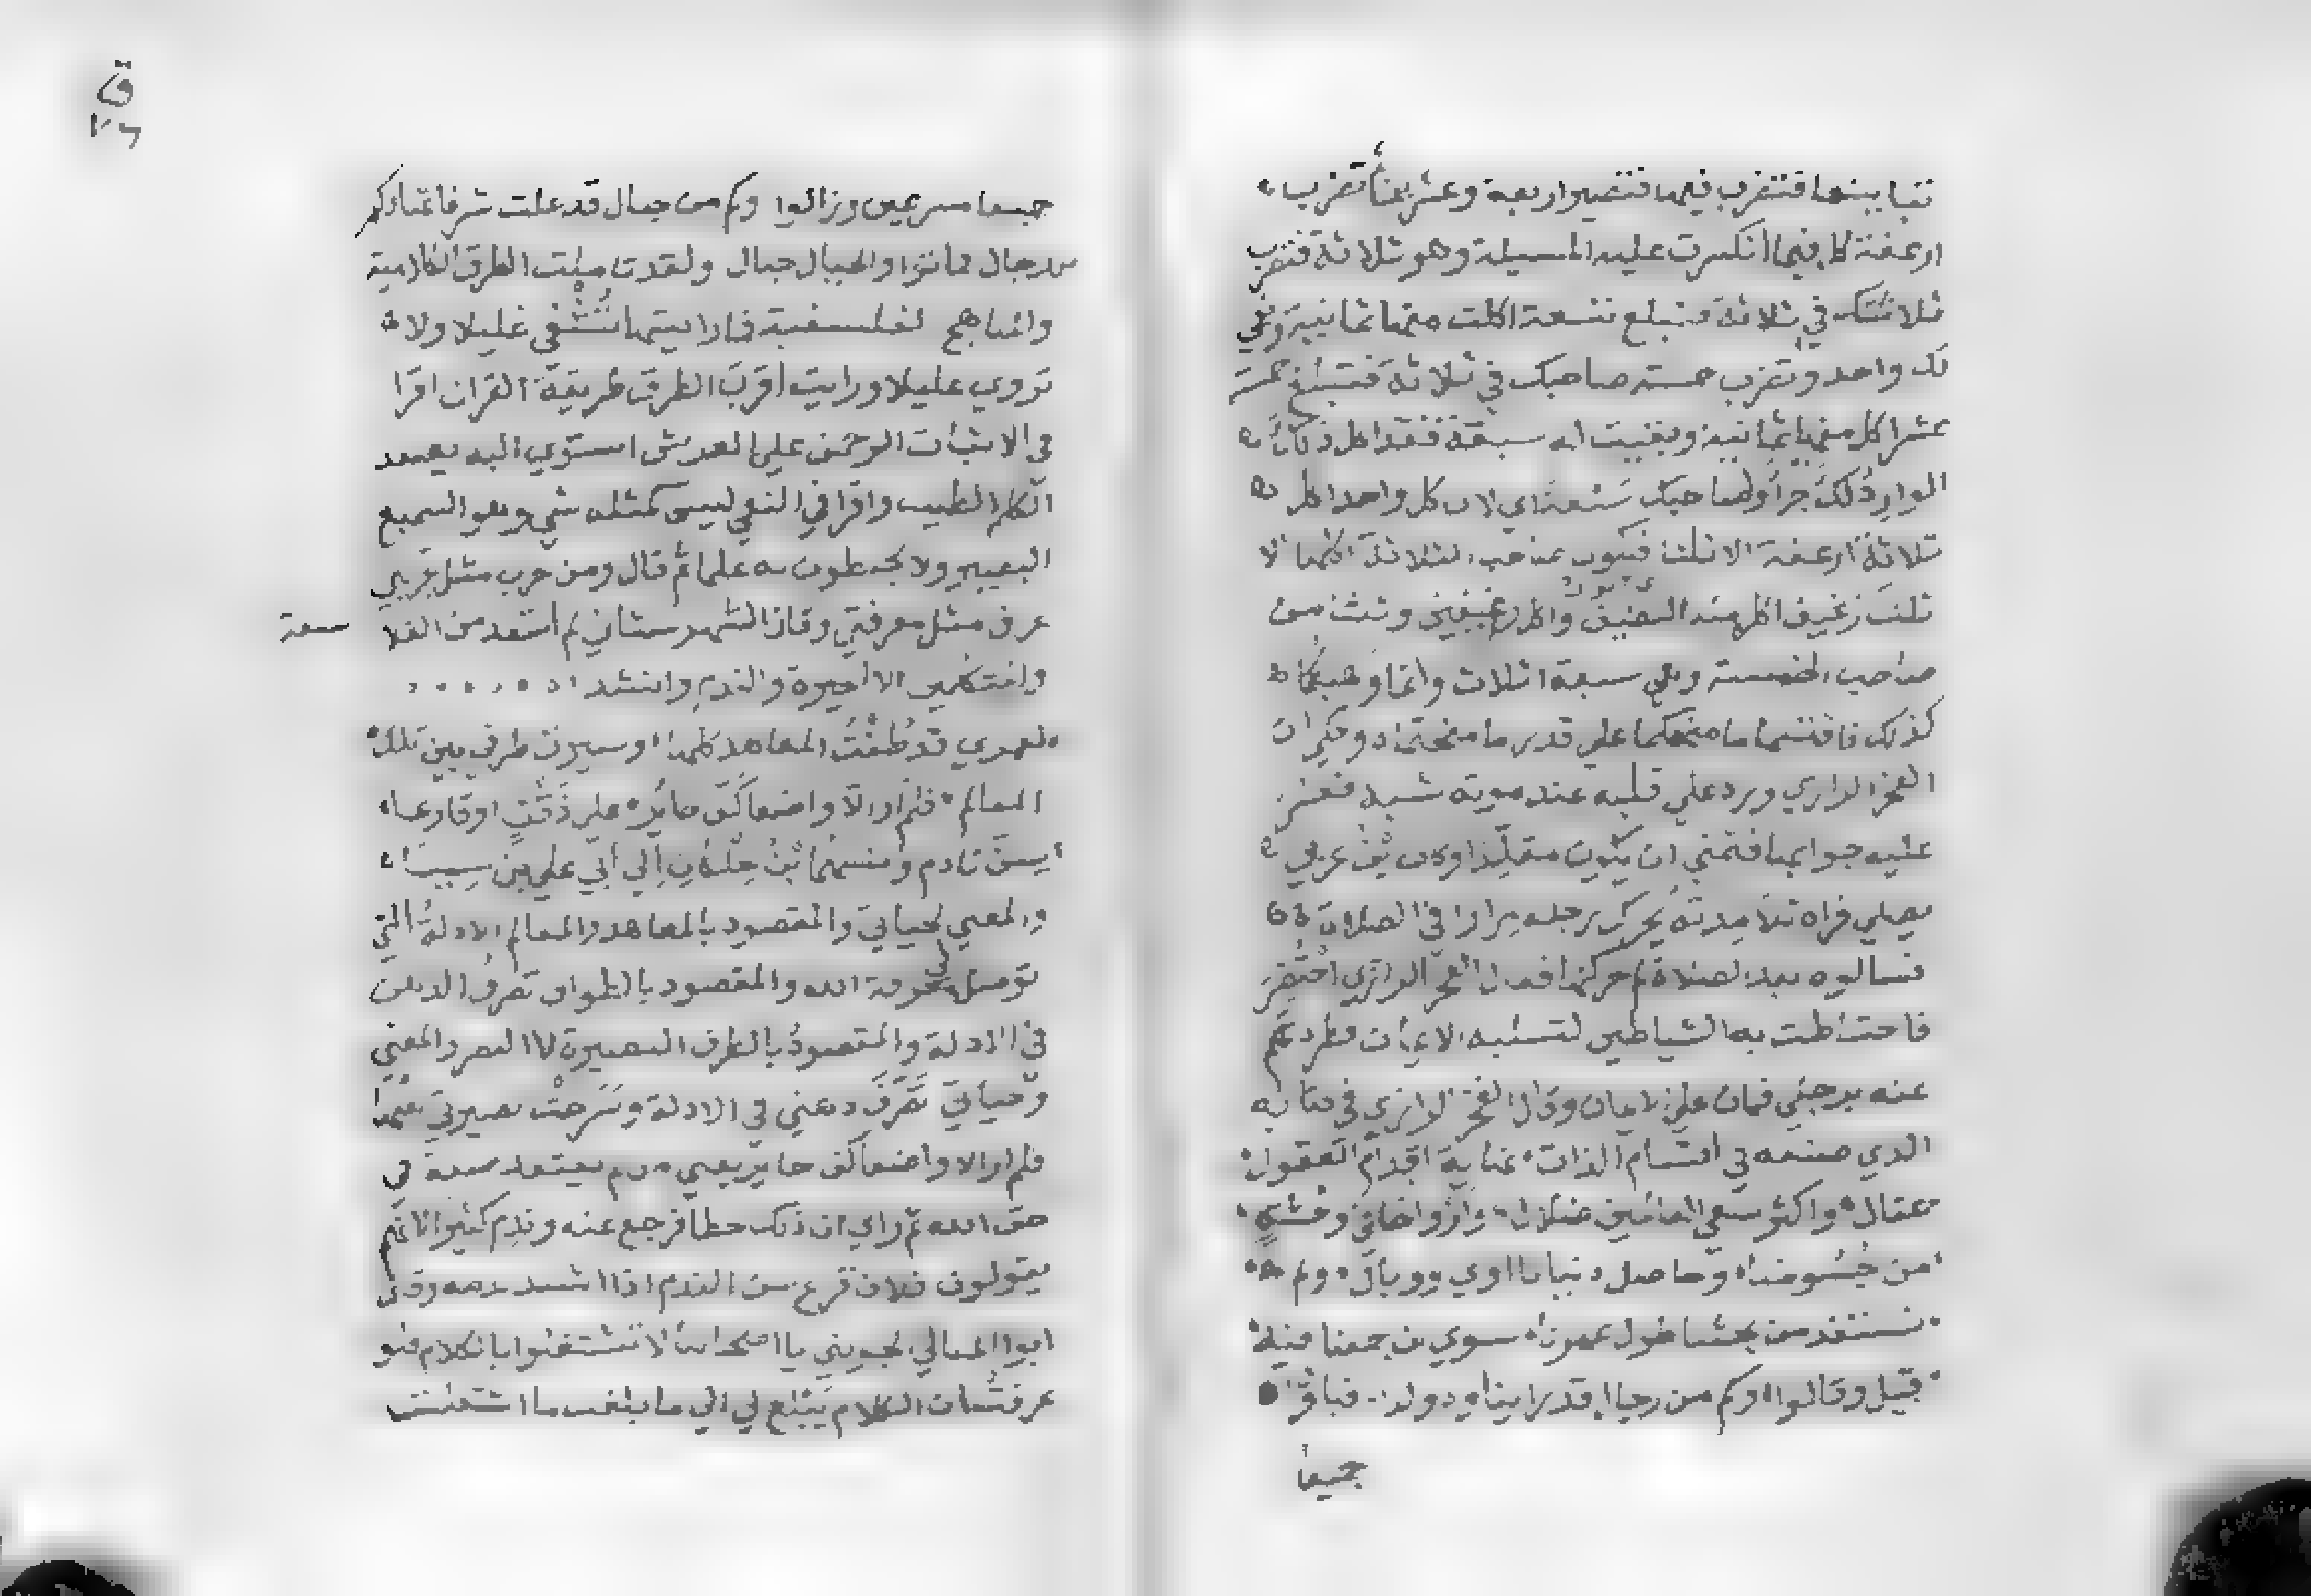 تتباينها فتضرب فيها فتصير اربعة وعشرين تضرب
ارغفتكما فيما انكسرت عليه المسيلة وهو ثلاثة فتضرب
ثلاثتك في ثلاثة فتبلغ تسعة اكلت منها ثمانية وبقي
لك واحد وتضرب خمسة صاحبك في ثلاثة فتبلغ خمسة
عشر اكل منها ثمانية وبقيت له سبعة فقد اكل ذلك
الوارد لك جزأ ولصاحبك سبعة اي لان كل واحد اكل
ثلاثة ارغفة الا ثلثا فيكون صاحب الثلاثة اكلها الا
ثلث رغيف اكل منه الضيف واكل رغيفين وثلث من
صاحب الخمسة وهي سبعة اثلاث وانما وهبكما
كذلك فاقتسما ما منحكما على قدر ما منحتماه وحكي ان
الفخر الرازي ورد على قلبه عند موته شبه فعسر
عليه جوابها فتمنى ان يكون مقلدا وكان بن عربي
يصلي فراه تلامذته يحرك رجله مرارا في الصلاة
فسالوه بعد الصلاة لم حركتها فقال الفخر الرازي احتضر
فاحتاطت به الشياطين لتسلبه الايمان فطردتهم
عنه برجلي فمات على الايمان وقال الفخر الرازي في كتابه
الذي صنفه في اقسام الذات نهاية اقدام العقول
عقال واكثر سعي العالمين ضلال وارواحنا في وحشة
من جسومنا وحاصل دنيانا اذى ووبال ولم
نستفد من بحثنا طول عمرنا سوى ان جمعنا فيه
قيل وقالوا وكم من رجال قد راينا ودولة فبادوا
جميعا
جميعا مسرعين وزالوا وكم من جبال قد علت شرفاتها
رجال فماتوا والجبال جبال ولقد تاملت الطرق الكلامية
والمناهج الفلسفية فما رايتها تشفي غليلا ولا
تروي عليلا ورايت اقرب الطرق طريقة القران اقرا
في الاثبات الرحمن على العرش استوى اليه يصعد
الكلم الطيب واقرا في النفي ليس كمثله شي وهو السميع
البصير ولا يحيطون به علما ثم قال ومن جرب مثل تجربتي
عرف مثل معرفتي وقال الشهرستاني لم استفد من الفلاسفة
والمتكلمين الا الحيرة والندم وانشد
لعمري قد طفت المعاهد كلها وسيرت طرفي بين تلك
المعالم فلم ار الا واضعا كف حاير على ذقن او قارعا
سن نادم ونسبهما بن خلكان الى ابي علي بن سينا
والمعنى لحياتي والمقصود بالمعاهد والمعالم الادلة التي
توصل لمعرفة الله والمقصود بالطواف تصرف الذهن
في الادلة والمقصود بالطرف البصيرة لا البصر والمعنى
وحياتي تصرف ذهني في الادلة وسرحت بصيرتي فيها
فلم ار الا واضعا كف حاير يعني من لم يعتقد صفة في
حق الله ثم راى ان ذلك خطا فرجع عنه وندم كثيرا فانهم
يقولون فلان قرع سن الندم اذا اشتد ندمه وقال
ابو المعالي الجويني يا اصحابنا لا تشتغلوا بالكلام فلو
عرفت ان الكلام يبلغ لي الى ما بلغت ما اشتغلت